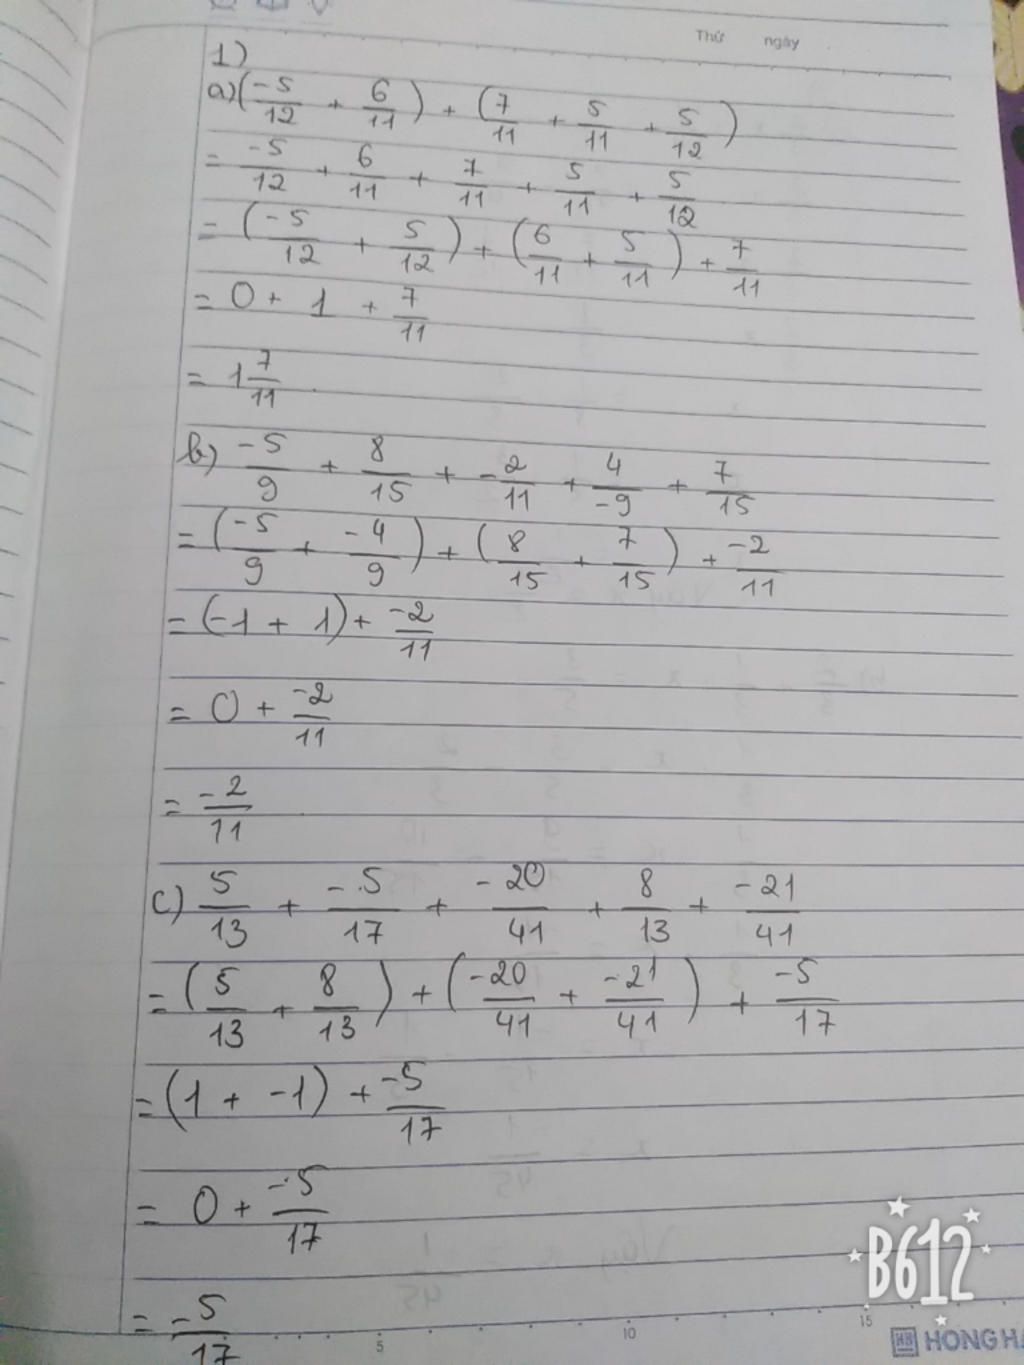 Thứ ngày
1)
a) (-5/12 + 6/11) + (7/11 + 5/11 + 5/12)
= -5/12 + 6/11 + 7/11 + 5/11 + 5/12
= (-5/12 + 5/12) + (6/11 + 5/11) + 7/11
= 0 + 1 + 7/11
= 1 7/11
b) -5/9 + 8/15 + -2/11 + 4/-9 + 7/15
= (-5/9 + -4/9) + (8/15 + 7/15) + -2/11
= (-1 + 1) + -2/11
= 0 + -2/11
= -2/11
c) 5/13 + -5/17 + -20/41 + 8/13 + -21/41
= (5/13 + 8/13) + (-20/41 + -21/41) + -5/17
= (1 + -1) + -5/17
= 0 + -5/17
= -5/17
B612
5 10 15
HH HONG HA